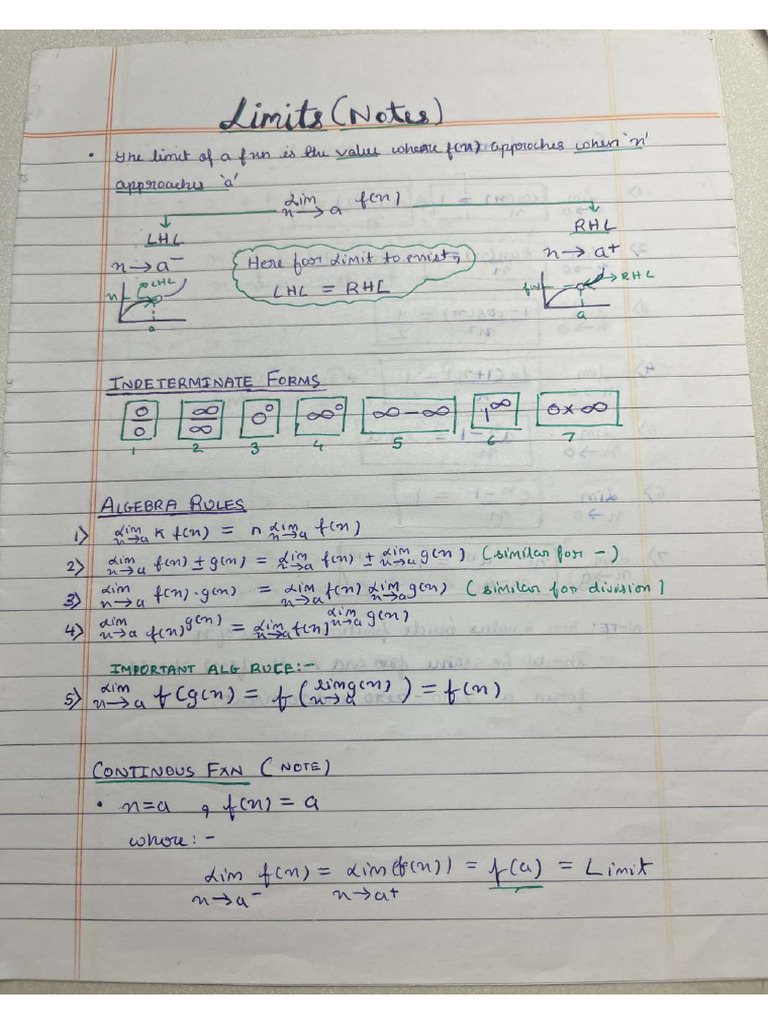 Limits (Notes)
• The limit of a fxn is the value where f(n) approaches when 'n'
approaches 'a'
lim n→a f(n)
LHL RHL
n→a⁻ Here for limit to exist, n→a⁺
LHL = RHL
LHL RHL
n f(n)
a a
INDETERMINATE FORMS
0/0 ∞/∞ 0⁰ ∞⁰ ∞-∞ 1^∞ 0×∞
1 2 3 4 5 6 7
ALGEBRA RULES
1) lim n→a K f(n) = n lim n→a f(n)
2) lim n→a f(n) ± g(n) = lim n→a f(n) ± lim n→a g(n) (similar for -)
3) lim n→a f(n)·g(n) = lim n→a f(n) lim n→a g(n) (similar for division)
4) lim n→a f(n)^g(n) = lim n→a f(n)^lim n→a g(n)
IMPORTANT ALG RULE:-
5) lim n→a f(g(n) = f(lim g(n) n→a) = f(n)
CONTINOUS FXN (NOTE)
• n=a , f(n) = a
where:-
lim n→a⁻ f(n) = lim n→a⁺ (f(n)) = f(a) = Limit